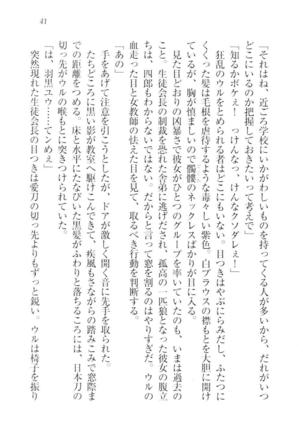 41
「それはね、近ごろ学校にいかがわしいものを持ってくる人が多いから、だれがいつ
どこにいるのか把握しておきたいって考えで」
「知るかボケぇ！　っけんなっ、けんなクソタレぇ！」
狂乱のウルをとめられる者はどこにもいない。目つきはやぶにらみだし、ふたつに
くくった髪は毛根を虐待するような毒々しい紫色。白ブラウスの襟もとを大胆に開け
ているが、胸が慎ましいので髑髏のネックレスばかりが目に入る。
見た目どおりの凶暴さで彼女がひとつのグループを率いていたのも、いまは過去の
こと。生徒会長の制裁を恐れた舎弟に逃げだされ、孤高の一匹狼となった彼女の腹立
ちは、四郎もわからないではない。だからと言って窓を割るのはやりすぎだ。ウルの
血走った目と女教師の怯えた目を見て、取るべき行動を判断する。
「あの」
手をあげて注意を引こうとしたが、ドアが激しく開く音に先手を取られた。
たちどころに黒い影が教室へ駆けこんできて、疾風もさながらの踏みこみで窓際ま
での距離をつめる。床と水平にたなびいた黒髪がふわりと落ちるころには、日本刀の
切っ先がウルの喉もとに突きつけられていた。
「は、羽黒ユウ……てンめぇ」
突然現れた生徒会長の目つきは愛刀の切っ先よりもずっと鋭い。ウルは椅子を振り